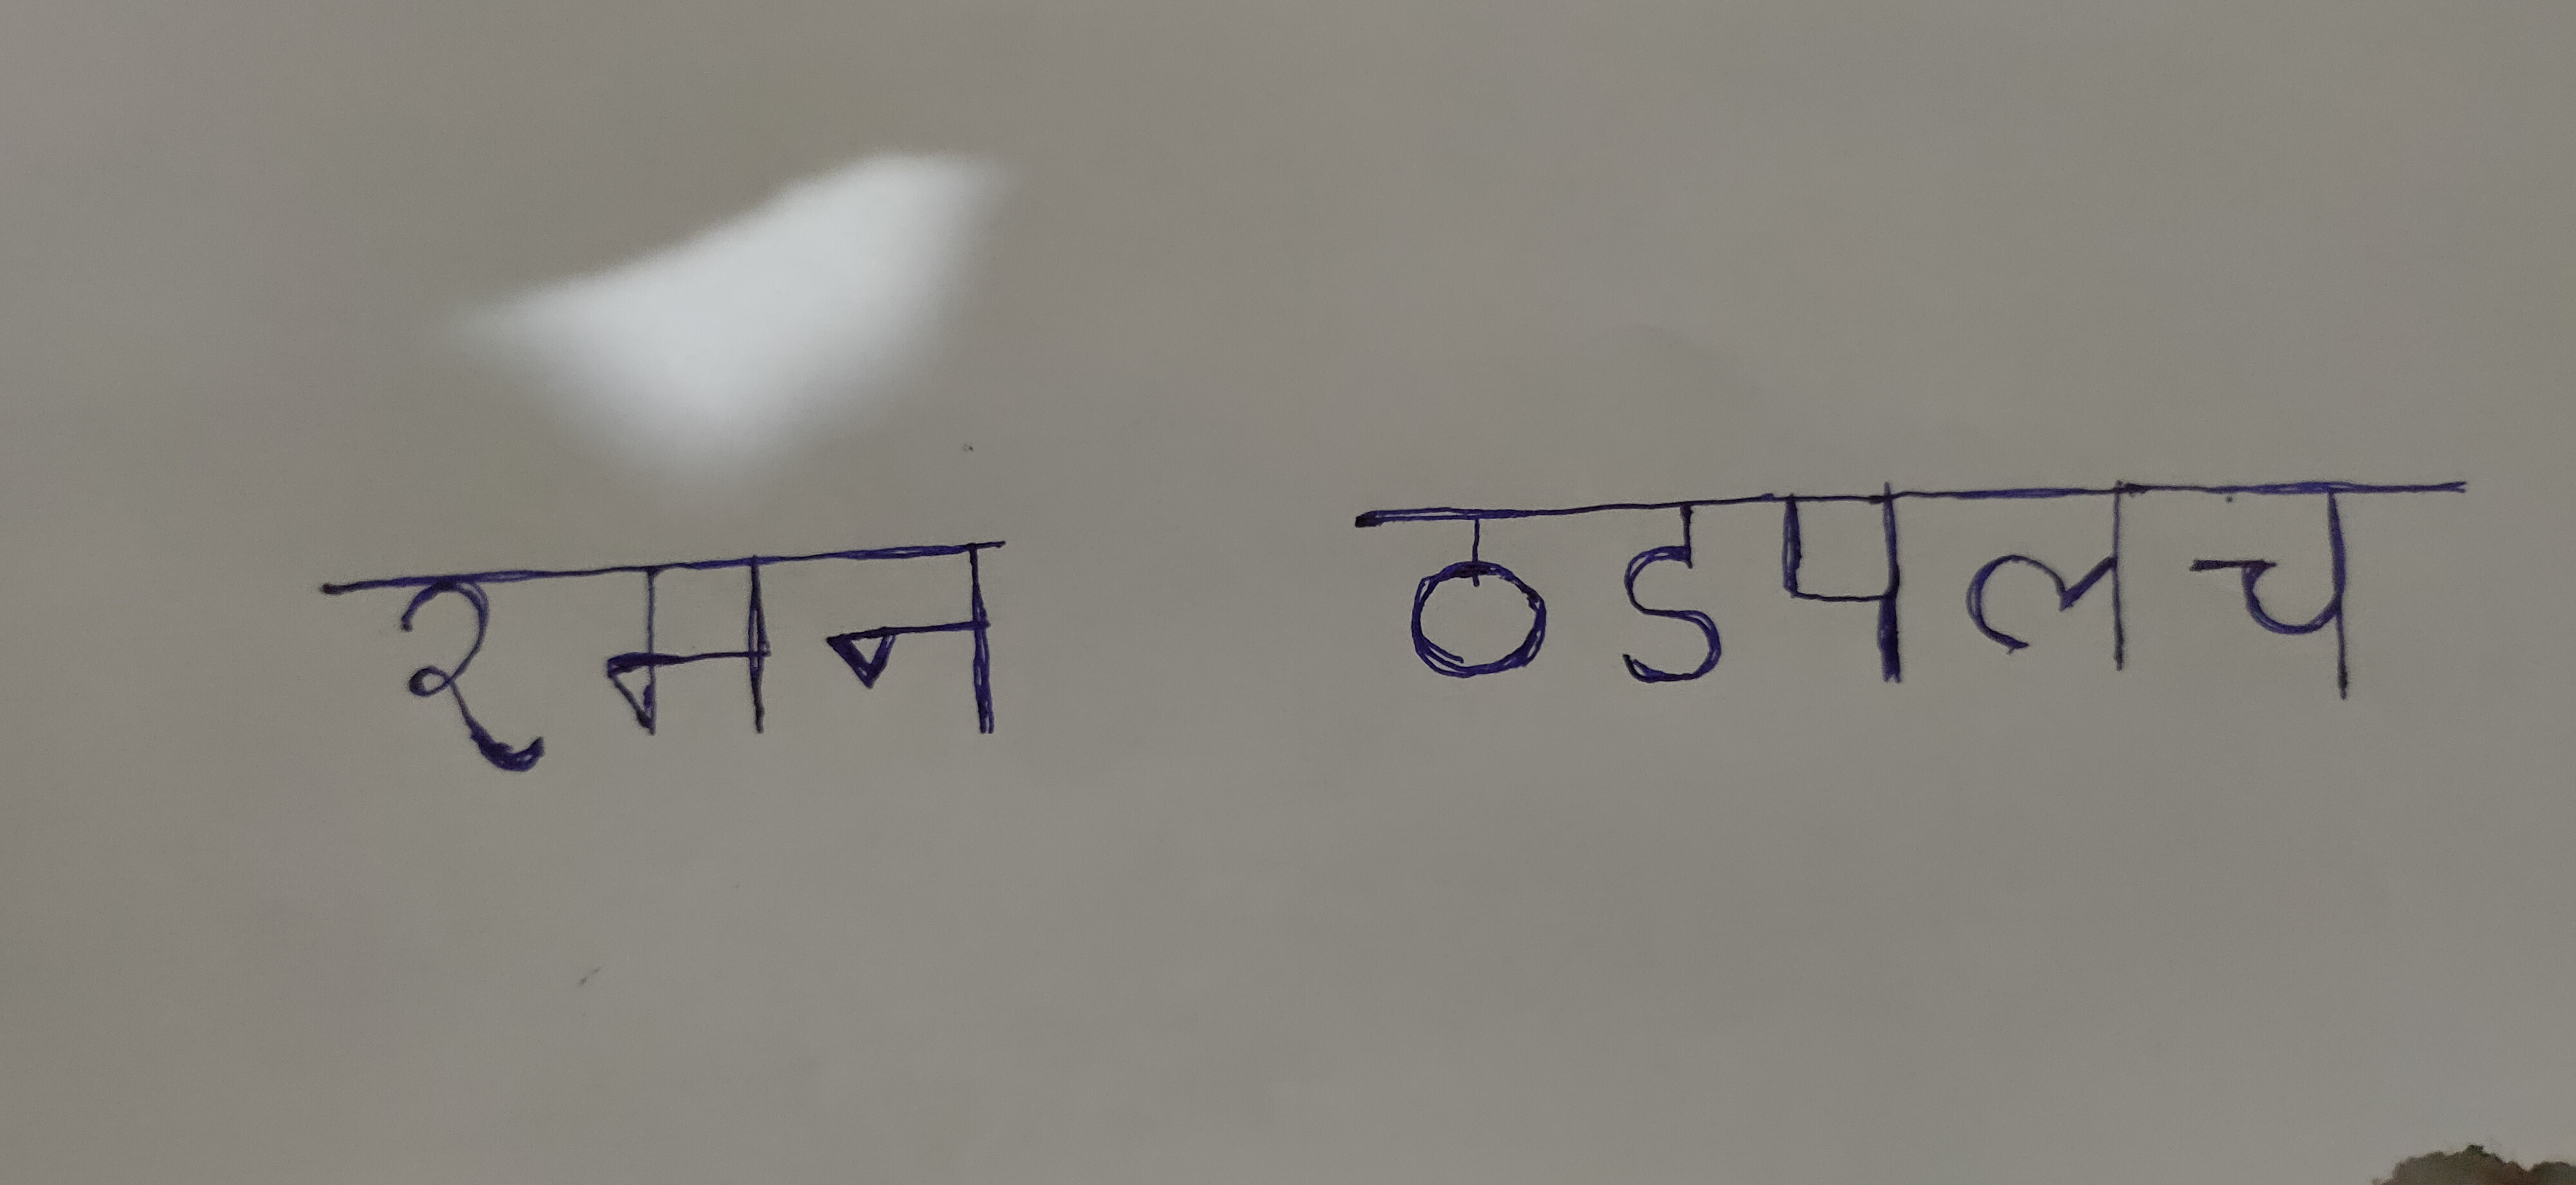 रमन ठडपलच